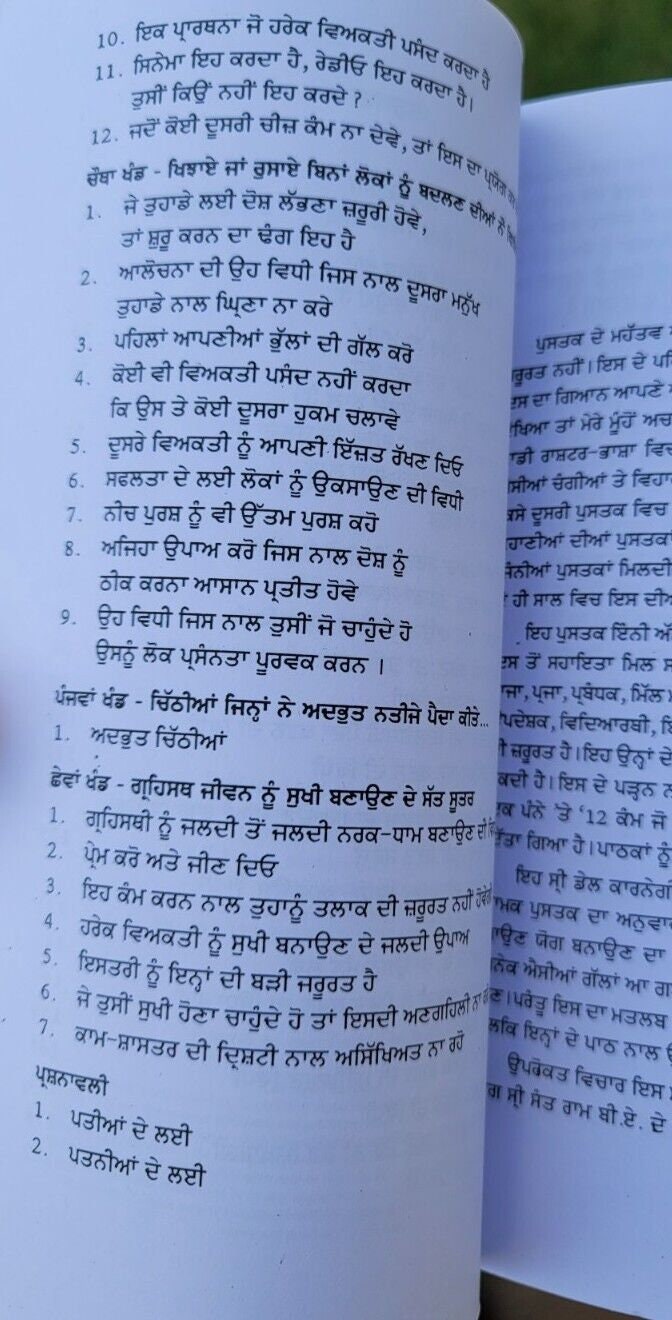 10. ਇਕ ਪ੍ਰਾਰਥਨਾ ਜੋ ਹਰੇਕ ਵਿਅਕਤੀ ਪਸੰਦ ਕਰਦਾ ਹੈ
11. ਸਿਨੇਮਾ ਇਹ ਕਰਦਾ ਹੈ, ਰੇਡੀਓ ਇਹ ਕਰਦਾ ਹੈ।
ਤੁਸੀਂ ਕਿਉਂ ਨਹੀਂ ਇਹ ਕਰਦੇ ?
12. ਜਦੋਂ ਕੋਈ ਦੂਸਰੀ ਚੀਜ਼ ਕੰਮ ਨਾ ਦੇਵੇ, ਤਾਂ ਇਸ ਦਾ ਪ੍ਰਯੋਗ
ਚੌਥਾ ਖੰਡ - ਖਿਝਾਏ ਜਾਂ ਰੁਸਾਏ ਬਿਨਾਂ ਲੋਕਾਂ ਨੂੰ ਬਦਲਣ ਦੀਆਂ ਨੌਂ
1. ਜੇ ਤੁਹਾਡੇ ਲਈ ਦੋਸ਼ ਲੱਭਣਾ ਜ਼ਰੂਰੀ ਹੋਵੇ,
ਤਾਂ ਸ਼ੁਰੂ ਕਰਨ ਦਾ ਢੰਗ ਇਹ ਹੈ
2. ਆਲੋਚਨਾ ਦੀ ਉਹ ਵਿਧੀ ਜਿਸ ਨਾਲ ਦੂਸਰਾ ਮਨੁੱਖ
ਤੁਹਾਡੇ ਨਾਲ ਘ੍ਰਿਣਾ ਨਾ ਕਰੇ
3. ਪਹਿਲਾਂ ਆਪਣੀਆਂ ਭੁੱਲਾਂ ਦੀ ਗੱਲ ਕਰੋ
4. ਕੋਈ ਵੀ ਵਿਅਕਤੀ ਪਸੰਦ ਨਹੀਂ ਕਰਦਾ
ਕਿ ਉਸ ਤੇ ਕੋਈ ਦੂਸਰਾ ਹੁਕਮ ਚਲਾਵੇ
5. ਦੂਸਰੇ ਵਿਅਕਤੀ ਨੂੰ ਆਪਣੀ ਇੱਜ਼ਤ ਰੱਖਣ ਦਿਓ
6. ਸਫਲਤਾ ਦੇ ਲਈ ਲੋਕਾਂ ਨੂੰ ਉਕਸਾਉਣ ਦੀ ਵਿਧੀ
7. ਨੀਚ ਪੁਰਸ਼ ਨੂੰ ਵੀ ਉੱਤਮ ਪੁਰਸ਼ ਕਹੋ
8. ਅਜਿਹਾ ਉਪਾਅ ਕਰੋ ਜਿਸ ਨਾਲ ਦੋਸ਼ ਨੂੰ
ਠੀਕ ਕਰਨਾ ਆਸਾਨ ਪ੍ਰਤੀਤ ਹੋਵੇ
9. ਉਹ ਵਿਧੀ ਜਿਸ ਨਾਲ ਤੁਸੀਂ ਜੋ ਚਾਹੁੰਦੇ ਹੋ
ਉਸਨੂੰ ਲੋਕ ਪ੍ਰਸੰਨਤਾ ਪੂਰਵਕ ਕਰਨ ।
ਪੰਜਵਾਂ ਖੰਡ - ਚਿੱਠੀਆਂ ਜਿਨ੍ਹਾਂ ਨੇ ਅਦਭੁਤ ਨਤੀਜੇ ਪੈਦਾ ਕੀਤੇ...
1. ਅਦਭੁਤ ਚਿੱਠੀਆਂ
ਛੇਵਾਂ ਖੰਡ - ਗ੍ਰਹਿਸਥ ਜੀਵਨ ਨੂੰ ਸੁਖੀ ਬਣਾਉਣ ਦੇ ਸੱਤ ਸੂਤਰ
1. ਗ੍ਰਹਿਸਥੀ ਨੂੰ ਜਲਦੀ ਤੋਂ ਜਲਦੀ ਨਰਕ-ਧਾਮ ਬਣਾਉਣ ਦੀ
2. ਪ੍ਰੇਮ ਕਰੋ ਅਤੇ ਜੀਣ ਦਿਓ
3. ਇਹ ਕੰਮ ਕਰਨ ਨਾਲ ਤੁਹਾਨੂੰ ਤਲਾਕ ਦੀ ਜ਼ਰੂਰਤ ਨਹੀਂ ਹੋਵੇਗੀ
4. ਹਰੇਕ ਵਿਅਕਤੀ ਨੂੰ ਸੁਖੀ ਬਨਾਉਣ ਦੇ ਜਲਦੀ ਉਪਾਅ
5. ਇਸਤਰੀ ਨੂੰ ਇਨ੍ਹਾਂ ਦੀ ਬੜੀ ਜਰੂਰਤ ਹੈ
6. ਜੇ ਤੁਸੀਂ ਸੁਖੀ ਹੋਣਾ ਚਾਹੁੰਦੇ ਹੋ ਤਾਂ ਇਸਦੀ ਅਣਗਹਿਲੀ ਨਾ
7. ਕਾਮ-ਸ਼ਾਸਤਰ ਦੀ ਦ੍ਰਿਸ਼ਟੀ ਨਾਲ ਅਸਿੱਖਿਅਤ ਨਾ ਰਹੋ
ਪ੍ਰਸ਼ਨਾਵਲੀ
1. ਪਤੀਆਂ ਦੇ ਲਈ
2. ਪਤਨੀਆਂ ਦੇ ਲਈ
ਪੁਸਤਕ ਦੇ ਮਹੱਤਵ
ਨਹੀਂ। ਇਸ ਦੇ
ਦਾ ਗਿਆਨ ਆਪਣੇ
ਤਾਂ ਮੇਰੇ ਮੂੰਹੋਂ
ਰਾਸ਼ਟਰ-ਭਾਸ਼ਾ
ਚੰਗੀਆਂ ਤੇ
ਦੂਸਰੀ ਪੁਸਤਕ ਵਿਚ
ਦੀਆਂ
ਪੁਸਤਕਾਂ ਮਿਲਦੀ
ਹੀ ਸਾਲ ਵਿਚ ਇਸ
ਇਹ ਪੁਸਤਕ ਇੰਨੀ
ਤੋਂ ਸਹਾਇਤਾ ਮਿਲ
ਪ੍ਰਜਾ, ਪ੍ਰਬੰਧਕ, ਮਿੱਲ
ਵਿਦਿਆਰਥੀ,
ਜ਼ਰੂਰਤ ਹੈ। ਇਹ ਉਨ੍ਹਾਂ ਦੇ
ਹੈ। ਇਸ ਦੇ ਪੜ੍ਹਨ
ਪੰਨੇ 'ਤੇ '12 ਕੰਮ ਜੋ
ਗਿਆ ਹੈ। ਪਾਠਕਾਂ ਨੂੰ
ਇਹ ਸ੍ਰੀ ਡੇਲ
ਪੁਸਤਕ ਦਾ
ਯੋਗ ਬਨਾਉਣ ਦਾ
ਐਸੀਆਂ ਗੱਲਾਂ ਆ
ਪਰੰਤੂ ਇਸ ਦਾ ਮਤਲਬ
ਇਨ੍ਹਾਂ ਦੇ ਪਾਠ ਨਾਲ
ਉਪਰੋਕਤ ਵਿਚਾਰ ਇਸ
ਸ੍ਰੀ ਸੰਤ ਰਾਮ ਬੀ.ਏ. ਦੇ